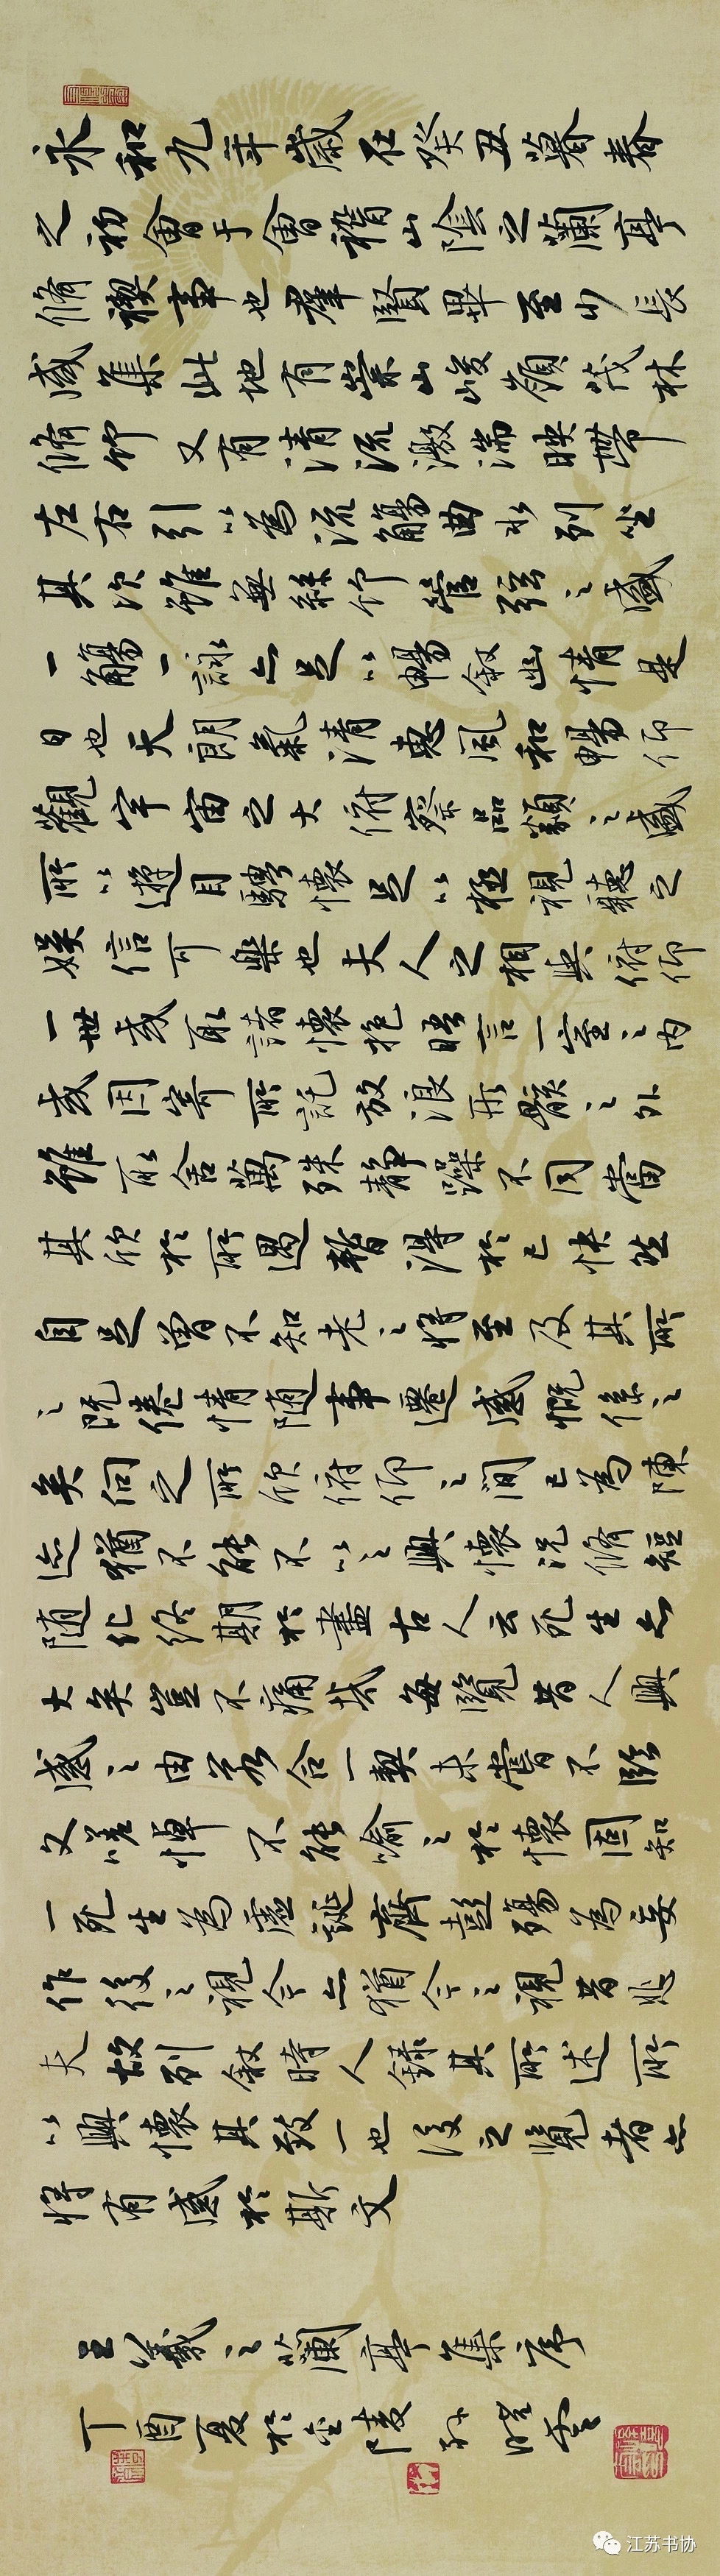 永和九年歲在癸丑暮春
之初會于會稽山陰之蘭亭
脩禊事也群賢畢至少長
咸集此地有崇山峻嶺茂林
脩竹又有清流激湍映帶
左右引以為流觴曲水列坐
其次雖無絲竹管弦之盛
一觴一詠亦足以暢敘幽情是
日也天朗氣清惠風和暢仰
觀宇宙之大俯察品類之盛
所以遊目騁懷足以極視聽之
娛信可樂也夫人之相與俯仰
一世或取諸懷抱晤言一室之內
或因寄所託放浪形骸之外
雖取舍萬殊靜躁不同當
其欣於所遇暫得於己快然
自足曾不知老之將至及其所
之既倦情隨事遷感慨係之
矣向之所欣俯仰之間已為陳
迹猶不能不以之興懷況脩短
隨化終期於盡古人云死生亦
大矣豈不痛哉每覽昔人興
感之由若合一契未嘗不臨
文嗟悼不能喻之於懷固知
一死生為虛誕齊彭殤為妄
作後之視今亦猶今之視昔悲
夫故列敘時人錄其所述所
以興懷其致一也後之覽者亦
將有感於斯文
王羲之蘭亭集序
丁酉夏於金陵孫曉雲
江苏书协